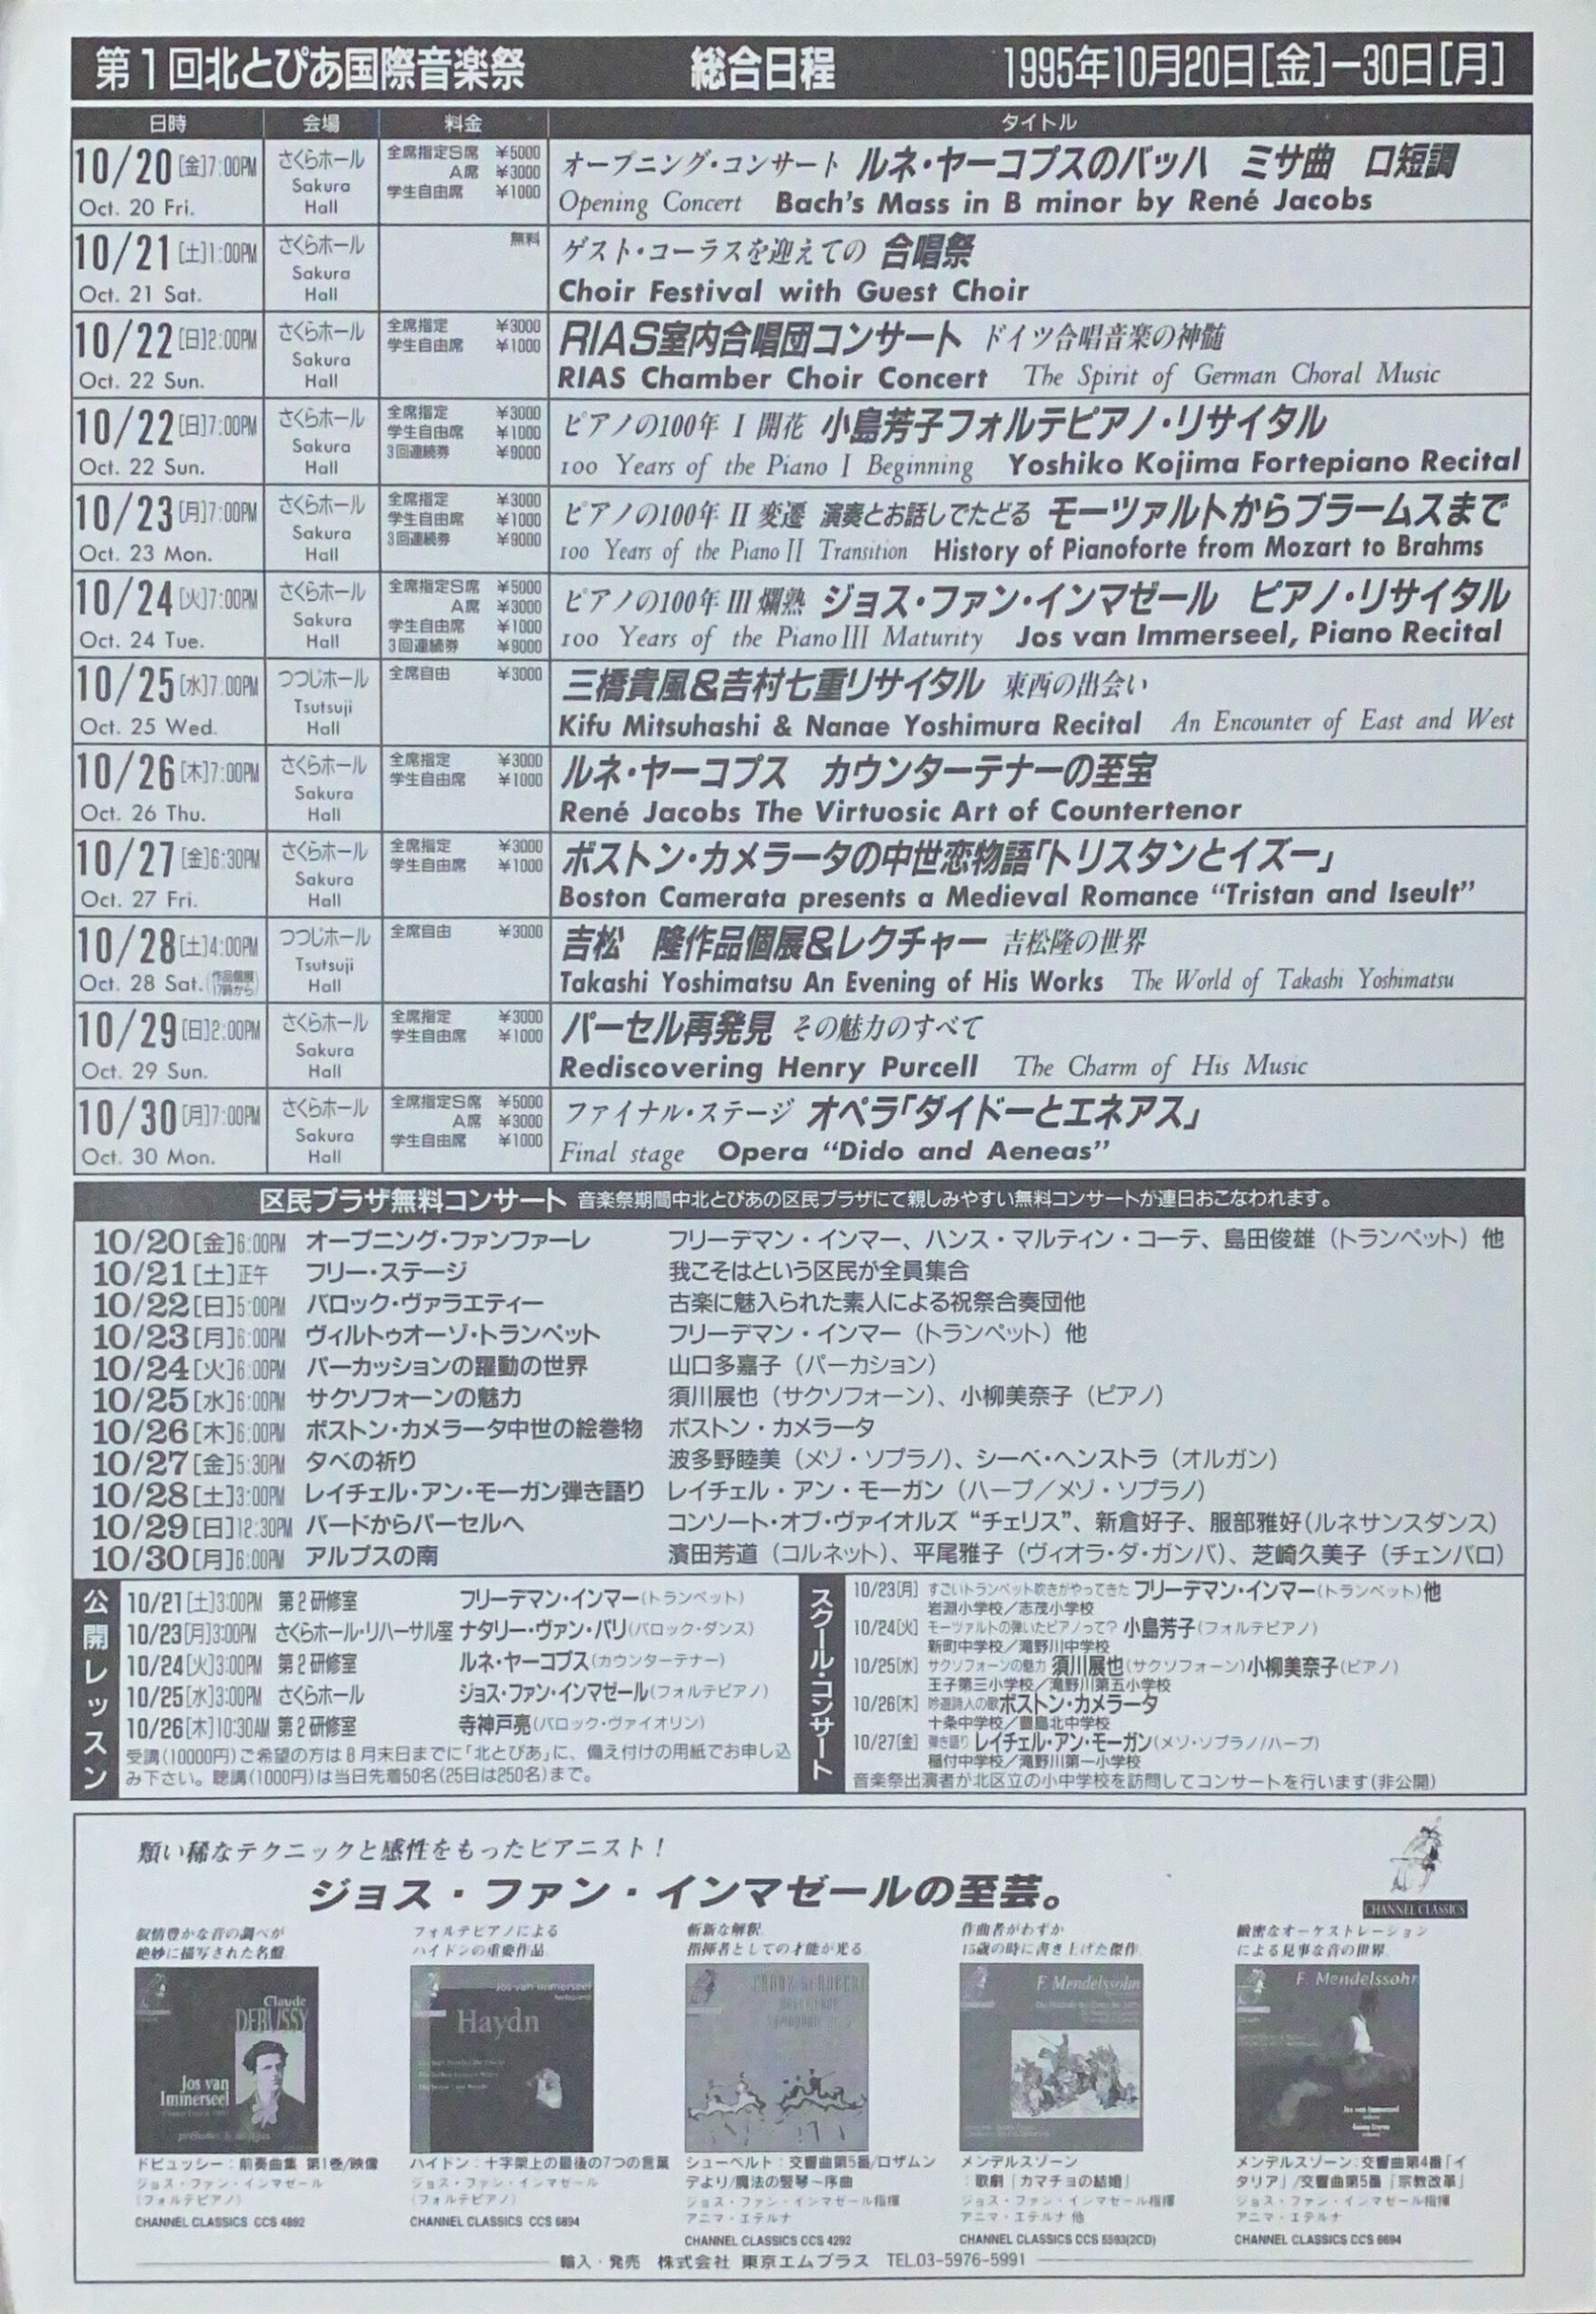 第1回北とぴあ国際音楽祭 総合日程 1995年10月20日[金]ー30日[月]
日時 会場 料金 タイトル
10/20[金]7:00PM さくらホール 全席指定S席 ¥5000 オープニング・コンサート ルネ・ヤーコプスのバッハ ミサ曲 ロ短調
A席 ¥3000
Oct. 20 Fri. Sakura Hall 学生自由席 ¥1000 Opening Concert Bach's Mass in B minor by René Jacobs
10/21[土]1:00PM さくらホール 無料 ゲスト・コーラスを迎えての 合唱祭
Oct. 21 Sat. Sakura Hall Choir Festival with Guest Choir
10/22[日]2:00PM さくらホール 全席指定 ¥3000 RIAS室内合唱団コンサート ドイツ合唱音楽の神髄
学生自由席 ¥1000
Oct. 22 Sun. Sakura Hall RIAS Chamber Choir Concert The Spirit of German Choral Music
10/22[日]7:00PM さくらホール 全席指定 ¥3000 ピアノの100年 I 開花 小島芳子フォルテピアノ・リサイタル
学生自由席 ¥1000
Oct. 22 Sun. Sakura Hall 3回連続券 ¥9000 100 Years of the Piano I Beginning Yoshiko Kojima Fortepiano Recital
10/23[月]7:00PM さくらホール 全席指定 ¥3000 ピアノの100年 II 変遷 演奏とお話しでたどる モーツァルトからブラームスまで
学生自由席 ¥1000
Oct. 23 Mon. Sakura Hall 3回連続券 ¥9000 100 Years of the Piano II Transition History of Pianoforte from Mozart to Brahms
10/24[火]7:00PM さくらホール 全席指定S席 ¥5000 ピアノの100年 III 爛熟 ジョス・ファン・インマゼール ピアノ・リサイタル
A席 ¥3000
学生自由席 ¥1000
Oct. 24 Tue. Sakura Hall 3回連続券 ¥9000 100 Years of the Piano III Maturity Jos van Immerseel, Piano Recital
10/25[水]7:00PM つつじホール 全席自由 ¥3000 三橋貴風&吉村七重リサイタル 東西の出会い
Oct. 25 Wed. Tsutsuji Hall Kifu Mitsuhashi & Nanae Yoshimura Recital An Encounter of East and West
10/26[木]7:00PM さくらホール 全席指定 ¥3000 ルネ・ヤーコプス カウンターテナーの至宝
学生自由席 ¥1000
Oct. 26 Thu. Sakura Hall René Jacobs The Virtuosic Art of Countertenor
10/27[金]6:30PM さくらホール 全席指定 ¥3000 ボストン・カメラータの中世恋物語「トリスタンとイズー」
学生自由席 ¥1000
Oct. 27 Fri. Sakura Hall Boston Camerata presents a Medieval Romance “Tristan and Iseult”
10/28[土]4:00PM つつじホール 全席自由 ¥3000 吉松 隆作品個展&レクチャー 吉松隆の世界
Oct. 28 Sat.(作品個展17時から) Tsutsuji Hall Takashi Yoshimatsu An Evening of His Works The World of Takashi Yoshimatsu
10/29[日]2:00PM さくらホール 全席指定 ¥3000 パーセル再発見 その魅力のすべて
学生自由席 ¥1000
Oct. 29 Sun. Sakura Hall Rediscovering Henry Purcell The Charm of His Music
10/30[月]7:00PM さくらホール 全席指定S席 ¥5000 ファイナル・ステージ オペラ「ダイドーとエネアス」
A席 ¥3000
Oct. 30 Mon. Sakura Hall 学生自由席 ¥1000 Final stage Opera “Dido and Aeneas”
区民プラザ無料コンサート 音楽祭期間中北とぴあの区民プラザにて親しみやすい無料コンサートが連日おこなわれます。
10/20[金]6:00PM オープニング・ファンファーレ フリーデマン・インマー、ハンス・マルティン・コーテ、島田俊雄（トランペット）他
10/21[土]正午 フリー・ステージ 我こそはという区民が全員集合
10/22[日]5:00PM バロック・ヴァラエティー 古楽に魅入られた素人による祝祭合奏団他
10/23[月]6:00PM ヴィルトゥオーゾ・トランペット フリーデマン・インマー（トランペット）他
10/24[火]6:00PM パーカッションの躍動の世界 山口多嘉子（パーカション）
10/25[水]6:00PM サクソフォーンの魅力 須川展也（サクソフォーン）、小柳美奈子（ピアノ）
10/26[木]6:00PM ボストン・カメラータ中世の絵巻物 ボストン・カメラータ
10/27[金]5:30PM 夕べの祈り 波多野睦美（メゾ・ソプラノ）、シーベ・ヘンストラ（オルガン）
10/28[土]3:00PM レイチェル・アン・モーガン弾き語り レイチェル・アン・モーガン（ハープ／メゾ・ソプラノ）
10/29[日]12:30PM バードからパーセルへ コンソート・オブ・ヴァイオルズ “チェリス”、新倉好子、服部雅好(ルネサンスダンス)
10/30[月]6:00PM アルプスの南 濱田芳道（コルネット）、平尾雅子（ヴィオラ・ダ・ガンバ）、芝崎久美子（チェンバロ）
公開レッスン
10/21[土]3:00PM 第2研修室 フリーデマン・インマー(トランペット)
10/23[月]3:00PM さくらホール・リハーサル室 ナタリー・ヴァン・パリ(バロック・ダンス)
10/24[火]3:00PM 第2研修室 ルネ・ヤーコプス(カウンターテナー)
10/25[水]3:00PM さくらホール ジョス・ファン・インマゼール(フォルテピアノ)
10/26[木]10:30AM 第2研修室 寺神戸亮(バロック・ヴァイオリン)
受講(10000円)ご希望の方は8月末日までに「北とぴあ」に、備え付けの用紙でお申し込
み下さい。聴講(1000円)は当日先着50名(25日は250名)まで。
スクール・コンサート
10/23[月] すごいトランペット吹きがやってきた フリーデマン・インマー(トランペット)他
岩淵小学校／志茂小学校
10/24[火] モーツァルトの弾いたピアノって? 小島芳子(フォルテピアノ)
新町中学校／滝野川中学校
10/25[水] サクソフォーンの魅力 須川展也(サクソフォーン)小柳美奈子(ピアノ)
王子第三小学校／滝野川第五小学校
10/26[木] 吟遊詩人の歌 ボストン・カメラータ
十条中学校／豊島北中学校
10/27[金] 弾き語り レイチェル・アン・モーガン(メゾ・ソプラノ/ハープ)
稲付中学校／滝野川第一小学校
音楽祭出演者が北区立の小中学校を訪問してコンサートを行います(非公開)
類い稀なテクニックと感性をもったピアニスト！
ジョス・ファン・インマゼールの至芸。
CHANNEL CLASSICS
叙情豊かな音の調べが
絶妙に描写された名盤
Claude
DEBUSSY
Jos van
Immerseel
ドビュッシー：前奏曲集 第1巻/映像
ジョス・ファン・インマゼール
(フォルテピアノ)
CHANNEL CLASSICS CCS 4892
フォルテピアノによる
ハイドンの重要作品
Jos van Immerseel
Haydn
ハイドン：十字架上の最後の7つの言葉
ジョス・ファン・インマゼール
(フォルテピアノ)
CHANNEL CLASSICS CCS 6894
斬新な解釈
指揮者としての才能が光る
シューベルト：交響曲第5番/ロザムン
デより/魔法の竪琴〜序曲
ジョス・ファン・インマゼール指揮
アニマ・エテルナ
CHANNEL CLASSICS CCS 4292
作曲者がわずか
15歳の時に書き上げた傑作
F. Mendelssohn
メンデルスゾーン
：歌劇「カマチョの結婚」
ジョス・ファン・インマゼール指揮
アニマ・エテルナ 他
CHANNEL CLASSICS CCS 5593(2CD)
緻密なオーケストレーション
による見事な音の世界
F. Mendelssohn
Jos van Immerseel
メンデルスゾーン：交響曲第4番「イ
タリア」/交響曲第5番「宗教改革」
ジョス・ファン・インマゼール指揮
アニマ・エテルナ
CHANNEL CLASSICS CCS 6694
輸入・発売 株式会社 東京エムプラス TEL.03-5976-5991